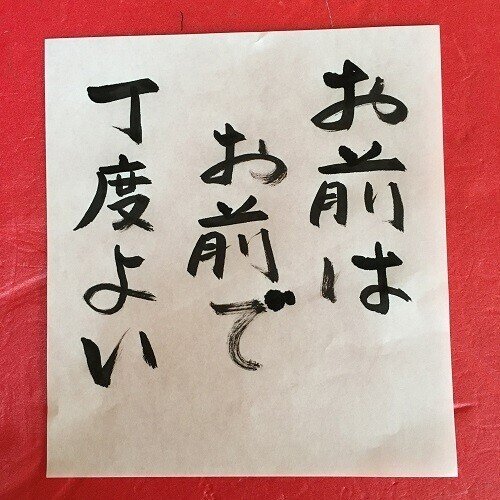 お前は
お前で
丁度よい